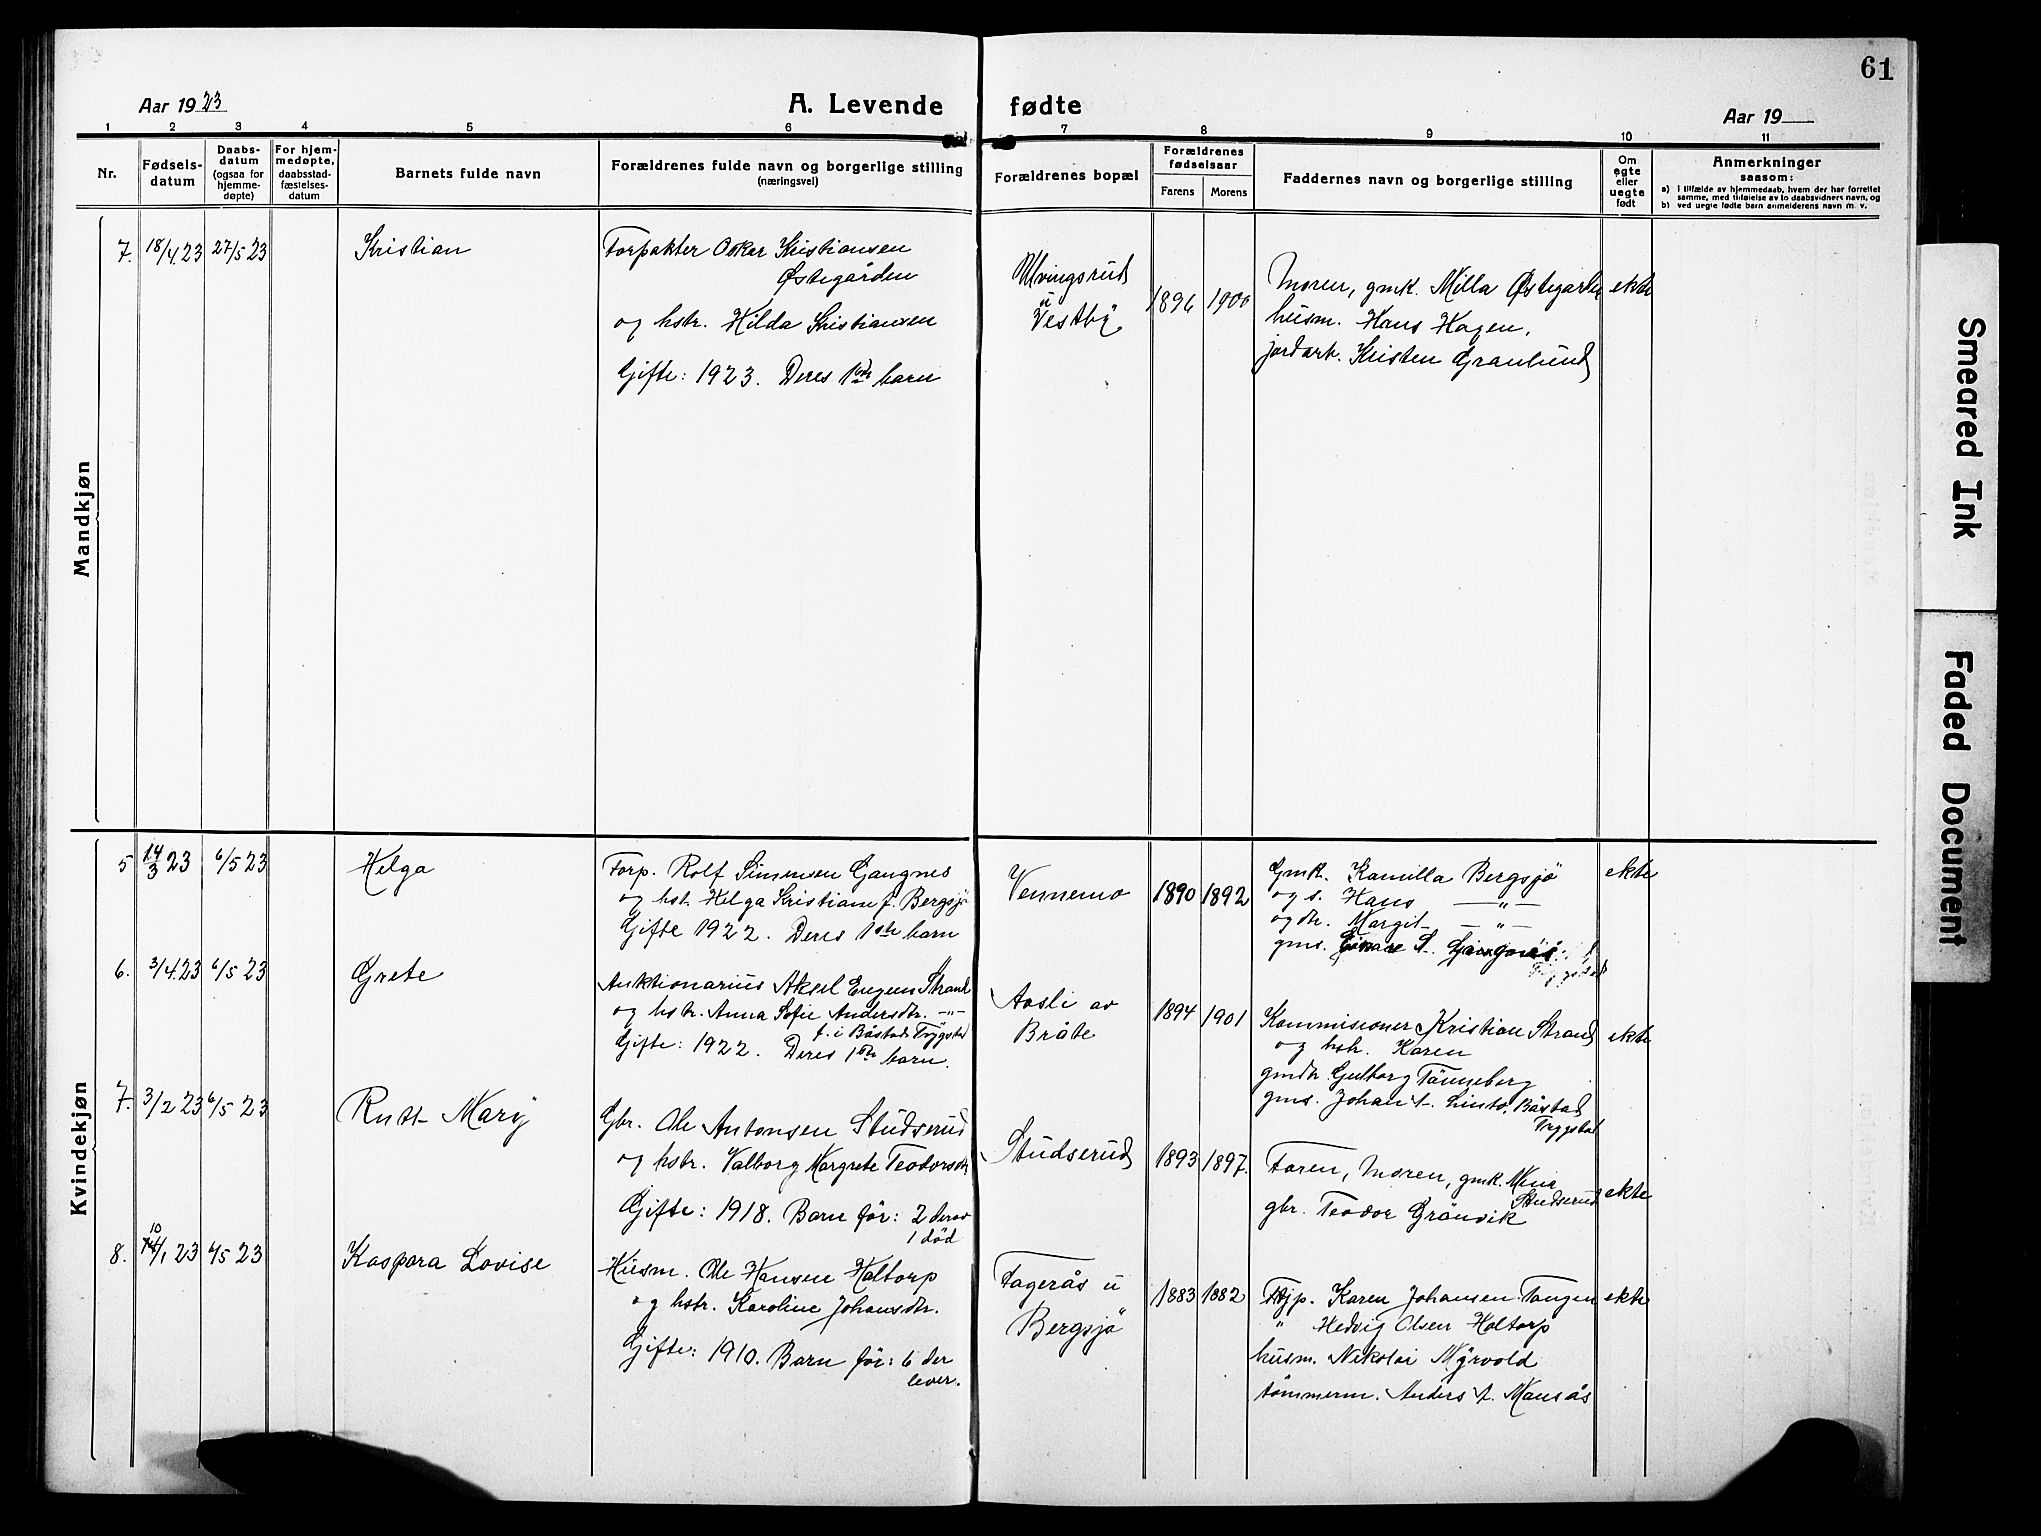 61
Aar 1923
A. Levende fødte
Aar 19
1 2 3 4 5 6 7 8 9 10 11
Nr.
Fødsels-
datum
Daabs-
datum
(ogsaa for
hjemme-
døpte)
For hjem-
medøpte,
daabsstad-
fæstelses-
datum
Barnets fulde navn
Forældrenes fulde navn og borgerlige stilling
(næringsvei)
Forældrenes bopæl
Forældrenes
fødselsaar
Farens Morens
Faddernes navn og borgerlige stilling
Om
egte
eller
uegte
født
Anmerkninger
saasom:
a) i tilfælde av hjemmedaab, hvem der har forrettet
samme, med tilføielse av to daabsvidners navn, og
b) ved uegte fødte barn anmelderens navn m. v.
Mandkjøn
7. 18/4.23 27/5 23 Kristian
Forpakter Oskar Kristiansen
Østegården
og hstr. Hilda Kristiansen
Gifte: 1923. Deres 1ste barn
Ulvingsrud
u
Vestby
1896 1900
Moren, gmk. Milla Østegarden
husm. Hans Hagen.
jordarb. Kristen Granlund
ekte
Kvindekjøn
5 14/3 23 6/5 23 Helga
Forp. Rolf Simensen Gangnes
og hst. Helga Kristiane f. Bergsjø
Gifte 1922. Deres 1ste barn
Vennemo
1890 1892
Gmk. Kamilla Bergsjö
og s. Hans —"—
og dtr. Margit —"—
gms. S. Gangnes
ekte
6. 3/4.23 6/5 23 Grete
Auktionarius Aksel Eugen Strand
og hstr. Anna Sofie Andersdtr. —"—
f. i Båstad Trygstad
Gifte: 1922. Deres 1ste barn.
Aasli av
Bråte
1894 1901
Kommisioner Kristian Strand
og hstr. Karen
gmdtr. Gulborg Tønneberg
gms. Johan Båstad
Trygstad
ekte
7. 3/2 23 6/5 23 Rutt Mary
Gbr. Ole Antonsen Studserud
og hstr. Valborg Margrete Teodorsdtr
Gifte: 1918. Barn før: 2 derav
1 død
Studserud
1893 1897.
Faren, Moren, gmk. Mina
Studserud
gbr. Teodor Grönvik
ekte
8. 10/1 23 6/5 23 Kaspara Lovise
Husm. Ole Hansen Holtorp
og hstr. Karoline Johansdtr.
Gifte: 1910. Barn før: 6 der
lever.
Fagerås u
Bergsjö
1883 1882
Thjp. Karen Johansen Tangen
" Hedvig Olsen Holtorp
husm. Nikolai Myrvold
tömmerm. Anders A. Monsås
ekte
Smeared Ink
Faded Document